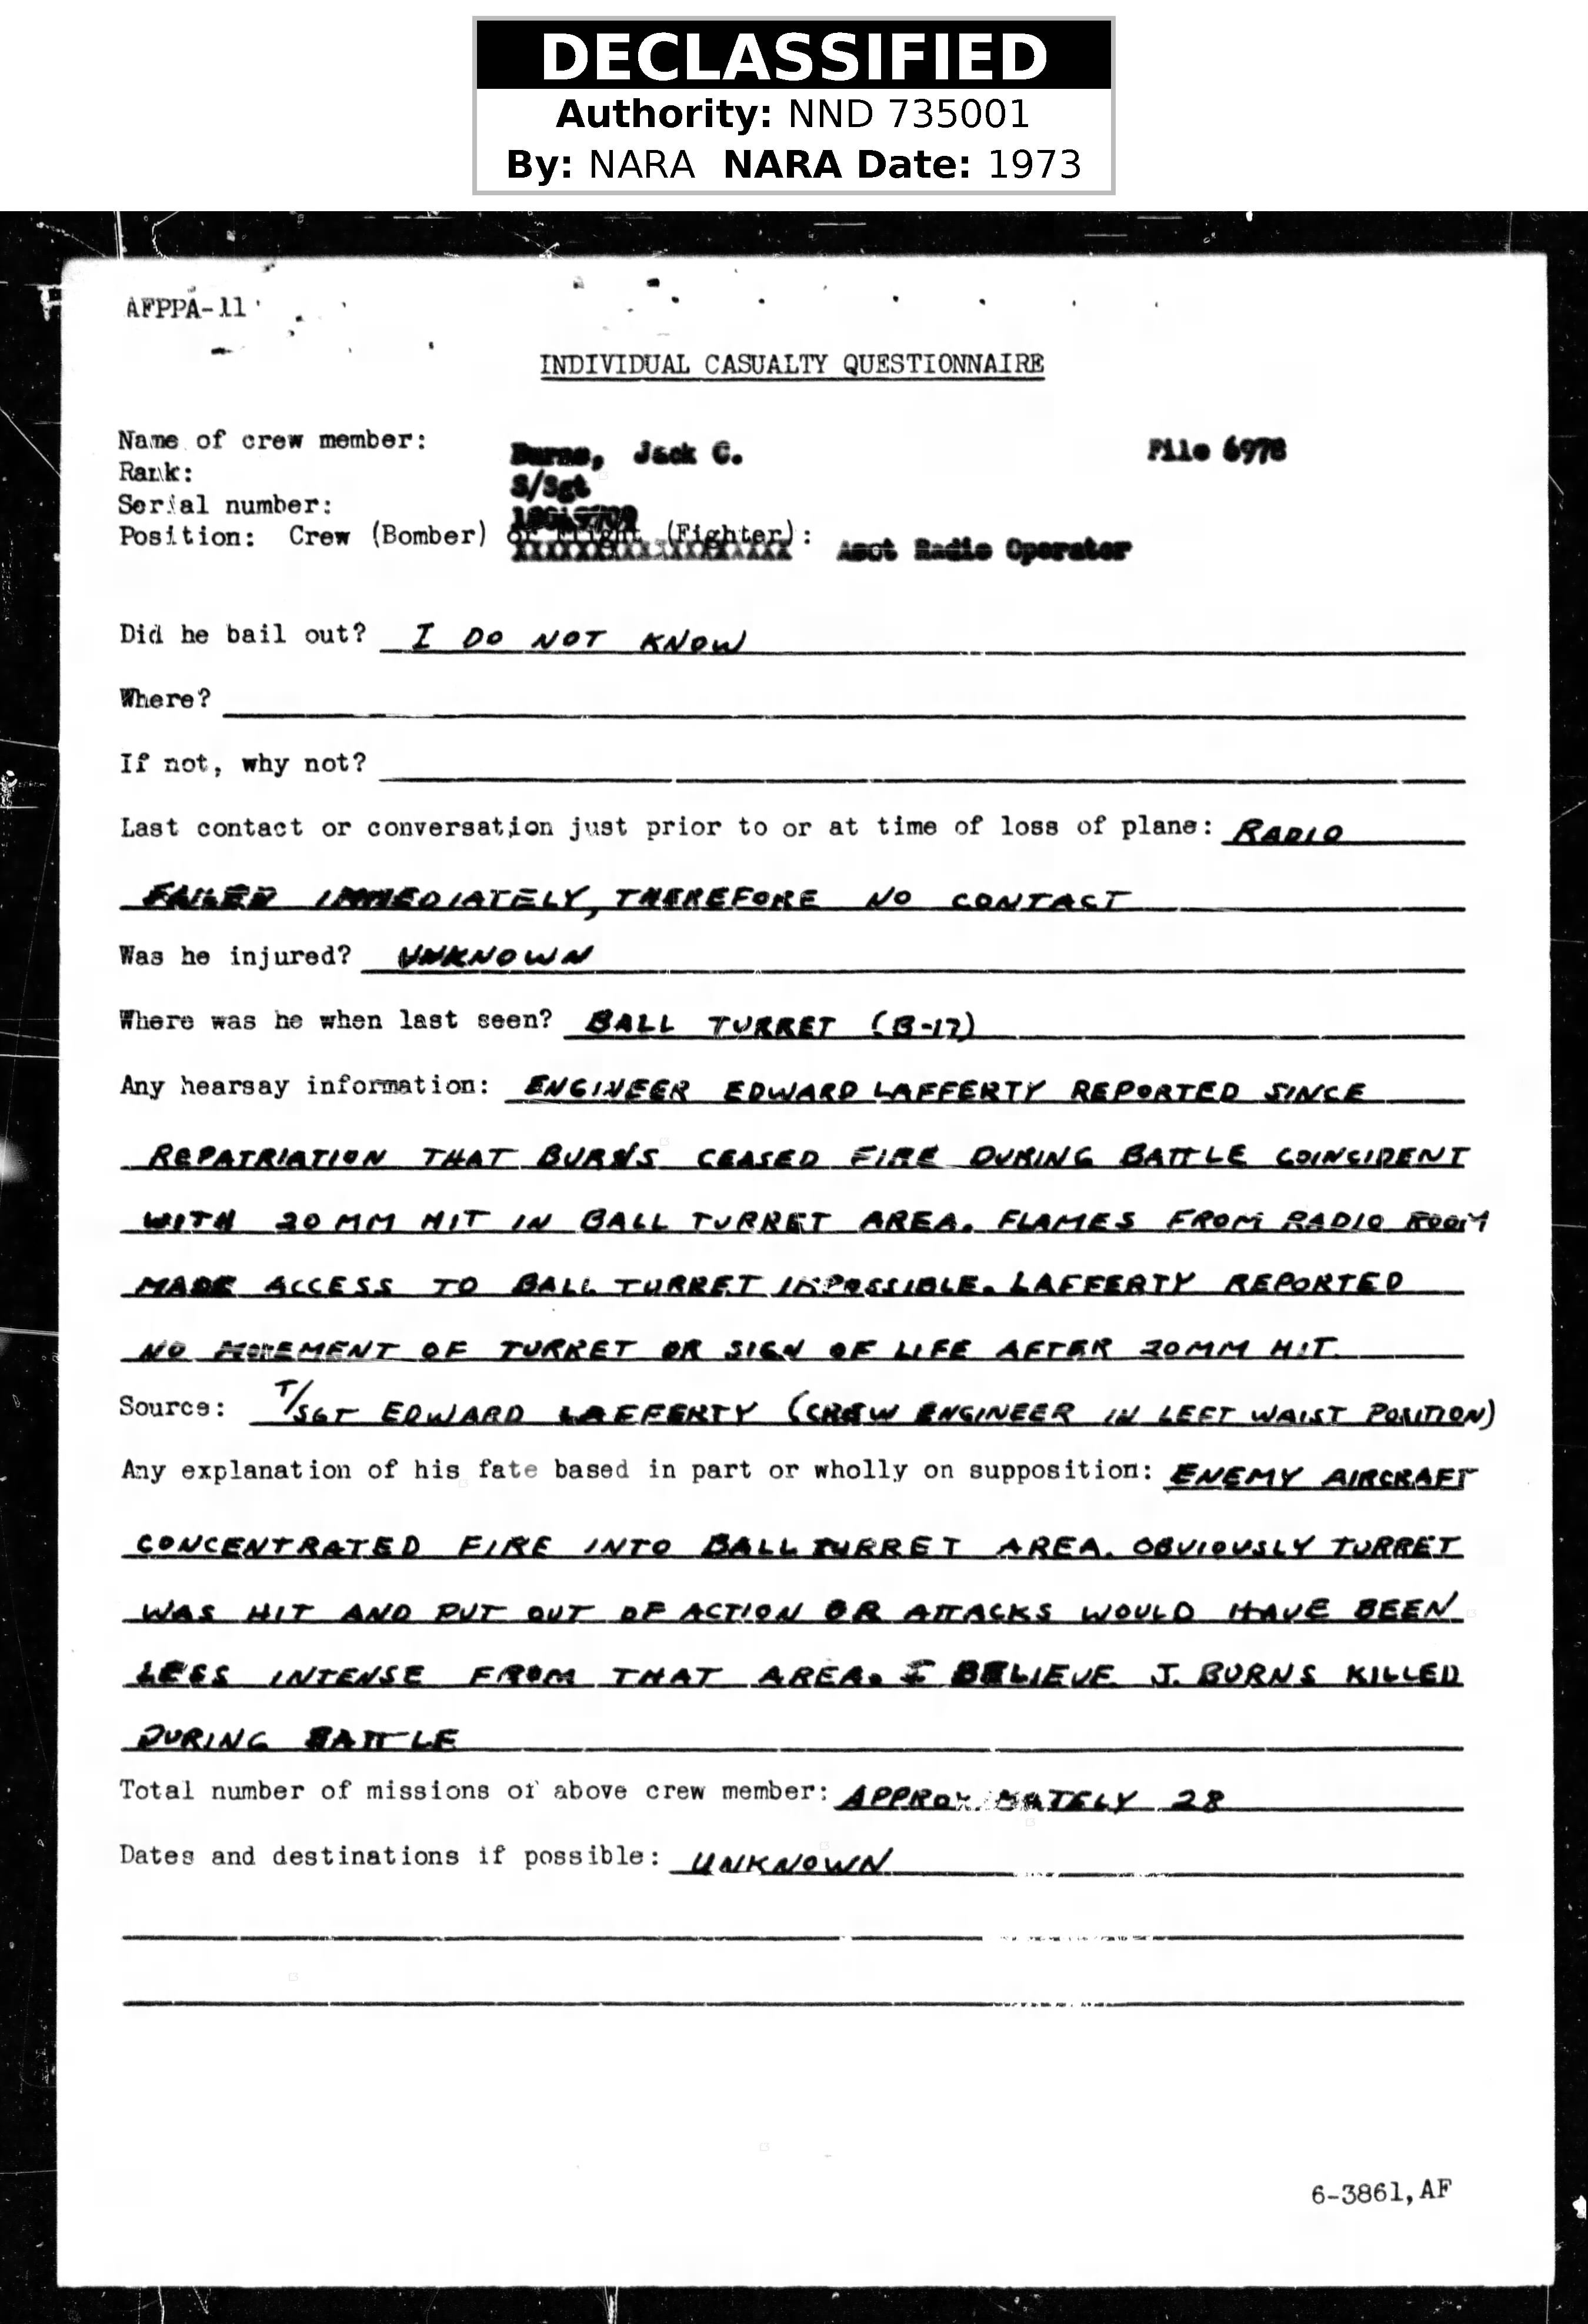 DECLASSIFIED
Authority: NND 735001
By: NARA NARA Date: 1973
AFPPA-11
INDIVIDUAL CASUALTY QUESTIONNAIRE
Name of crew member: Burns, Jack C. File 6978
Rank: S/Sgt
Serial number:
Position: Crew (Bomber) or Flight (Fighter): Asst Radio Operator
Did he bail out? I DO NOT KNOW
Where?
If not, why not?
Last contact or conversation just prior to or at time of loss of plane: RADIO
FAILED IMMEDIATELY, THEREFORE NO CONTACT
Was he injured? UNKNOWN
Where was he when last seen? BALL TURRET (B-17)
Any hearsay information: ENGINEER EDWARD LAFFERTY REPORTED SINCE
REPATRIATION THAT BURNS CEASED FIRE DURING BATTLE COINCIDENT
WITH 20 MM HIT IN BALL TURRET AREA. FLAMES FROM RADIO ROOM
MADE ACCESS TO BALL TURRET IMPOSSIBLE. LAFFERTY REPORTED
NO MOVEMENT OF TURRET OR SIGN OF LIFE AFTER 20MM HIT.
Source: T/SGT EDWARD LAFFERTY (CREW ENGINEER IN LEFT WAIST POSITION)
Any explanation of his fate based in part or wholly on supposition: ENEMY AIRCRAFT
CONCENTRATED FIRE INTO BALL TURRET AREA. OBVIOUSLY TURRET
WAS HIT AND PUT OUT OF ACTION OR ATTACKS WOULD HAVE BEEN
LESS INTENSE FROM THAT AREA. I BELIEVE J. BURNS KILLED
DURING BATTLE
Total number of missions of above crew member: APPROXIMATELY 28
Dates and destinations if possible: UNKNOWN
6-3861, AF